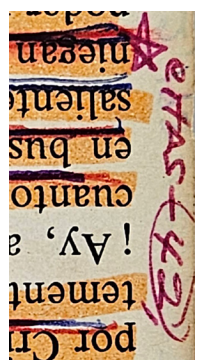 por Cri
tement
¡Ay, a
cuanto
en bus
saliente
niegan
poder